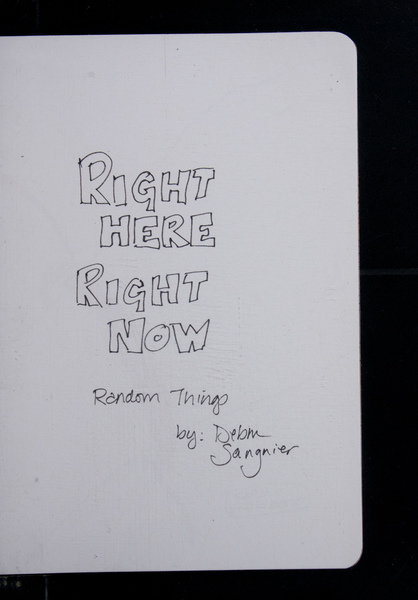 RIGHT
HERE
RIGHT
NOW
Random Things
by: Debra
Sangnier